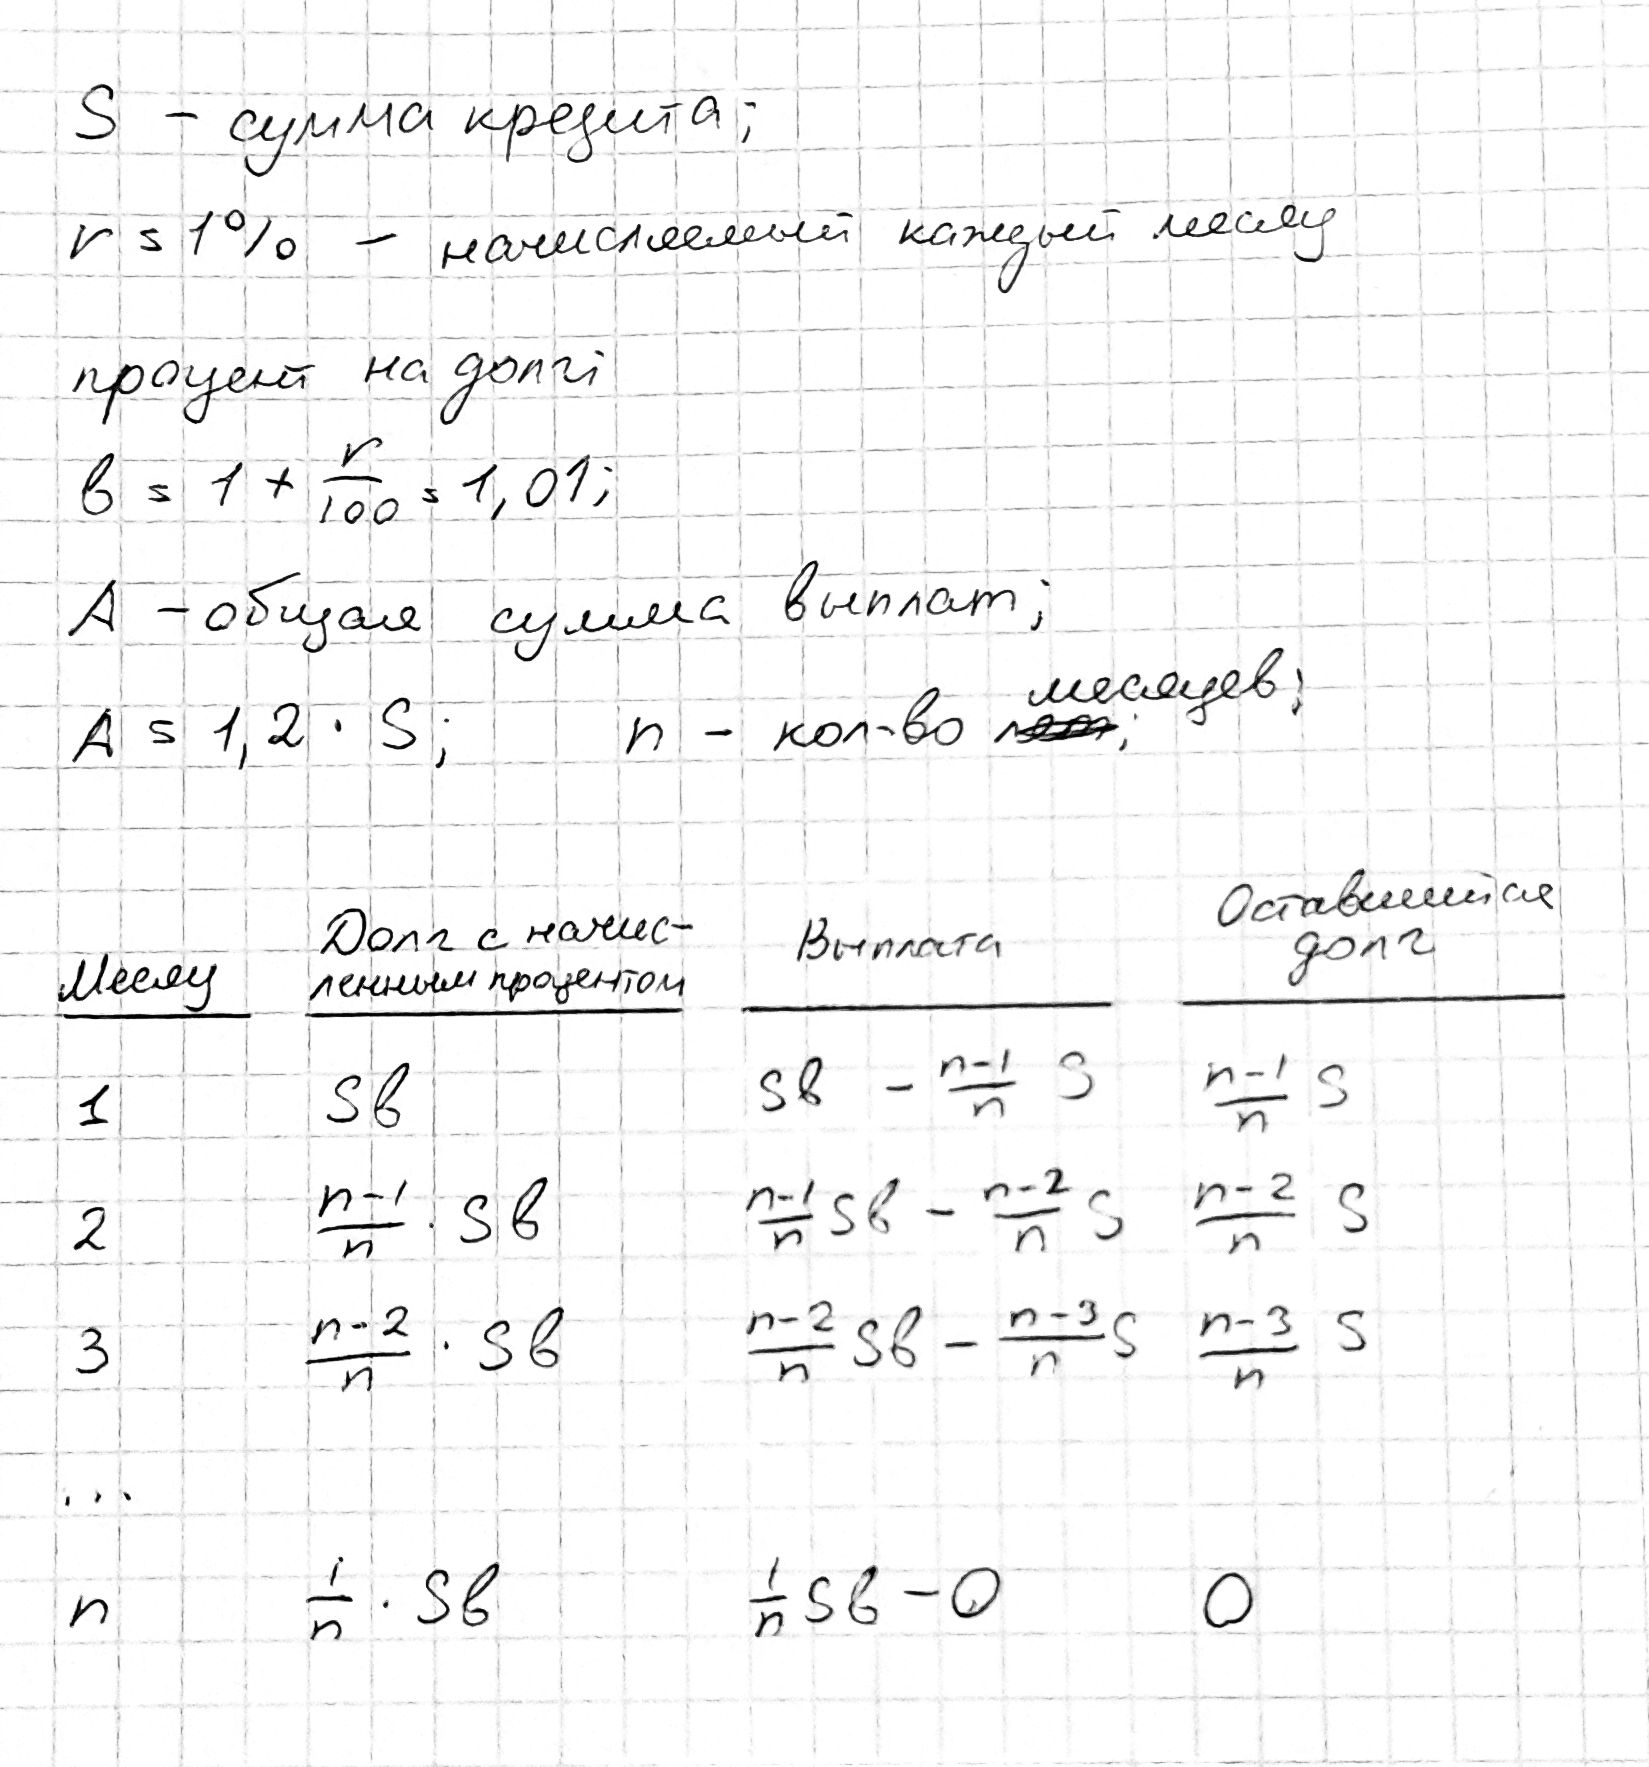 S – сумма кредита;
r = 1% – начисляемый каждый месяц
процент на долг;
b = 1 + r/100 = 1,01;
A – общая сумма выплат;
A = 1,2 · S; n – кол-во месяцев;
Месяц Долг с начис-ленным процентом Выплата Оставшийся долг
1 Sb Sb – (n-1)/n S (n-1)/n S
2 (n-1)/n · Sb (n-1)/n Sb – (n-2)/n S (n-2)/n S
3 (n-2)/n · Sb (n-2)/n Sb – (n-3)/n S (n-3)/n S
...
n 1/n · Sb 1/n Sb – 0 0